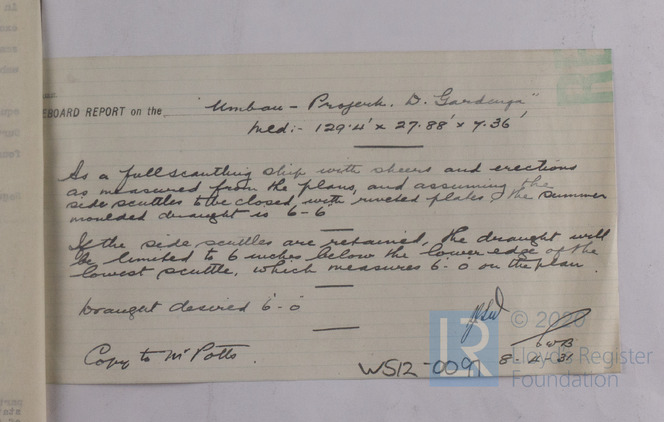 EBOARD REPORT on the "Umbau - Projekt. D. Gardenga"
mld:- 129.4' x 27.88' x 7.36'
As a full scantling ship with sheers and erections
as measured from the plans, and assuming the
side scuttles to be closed, with riveted plates, the summer
moulded draught is 6-6
If the side scuttles are retained, the draught will
be limited to 6 inches below the lower edge of the
lowest scuttle, which measures 6-0 on the plan.
Draught desired 6-0
Copy to Mr Potts.
WS12-0091
8-4-31
© 2020
Lloyd's Register
Foundation
LR